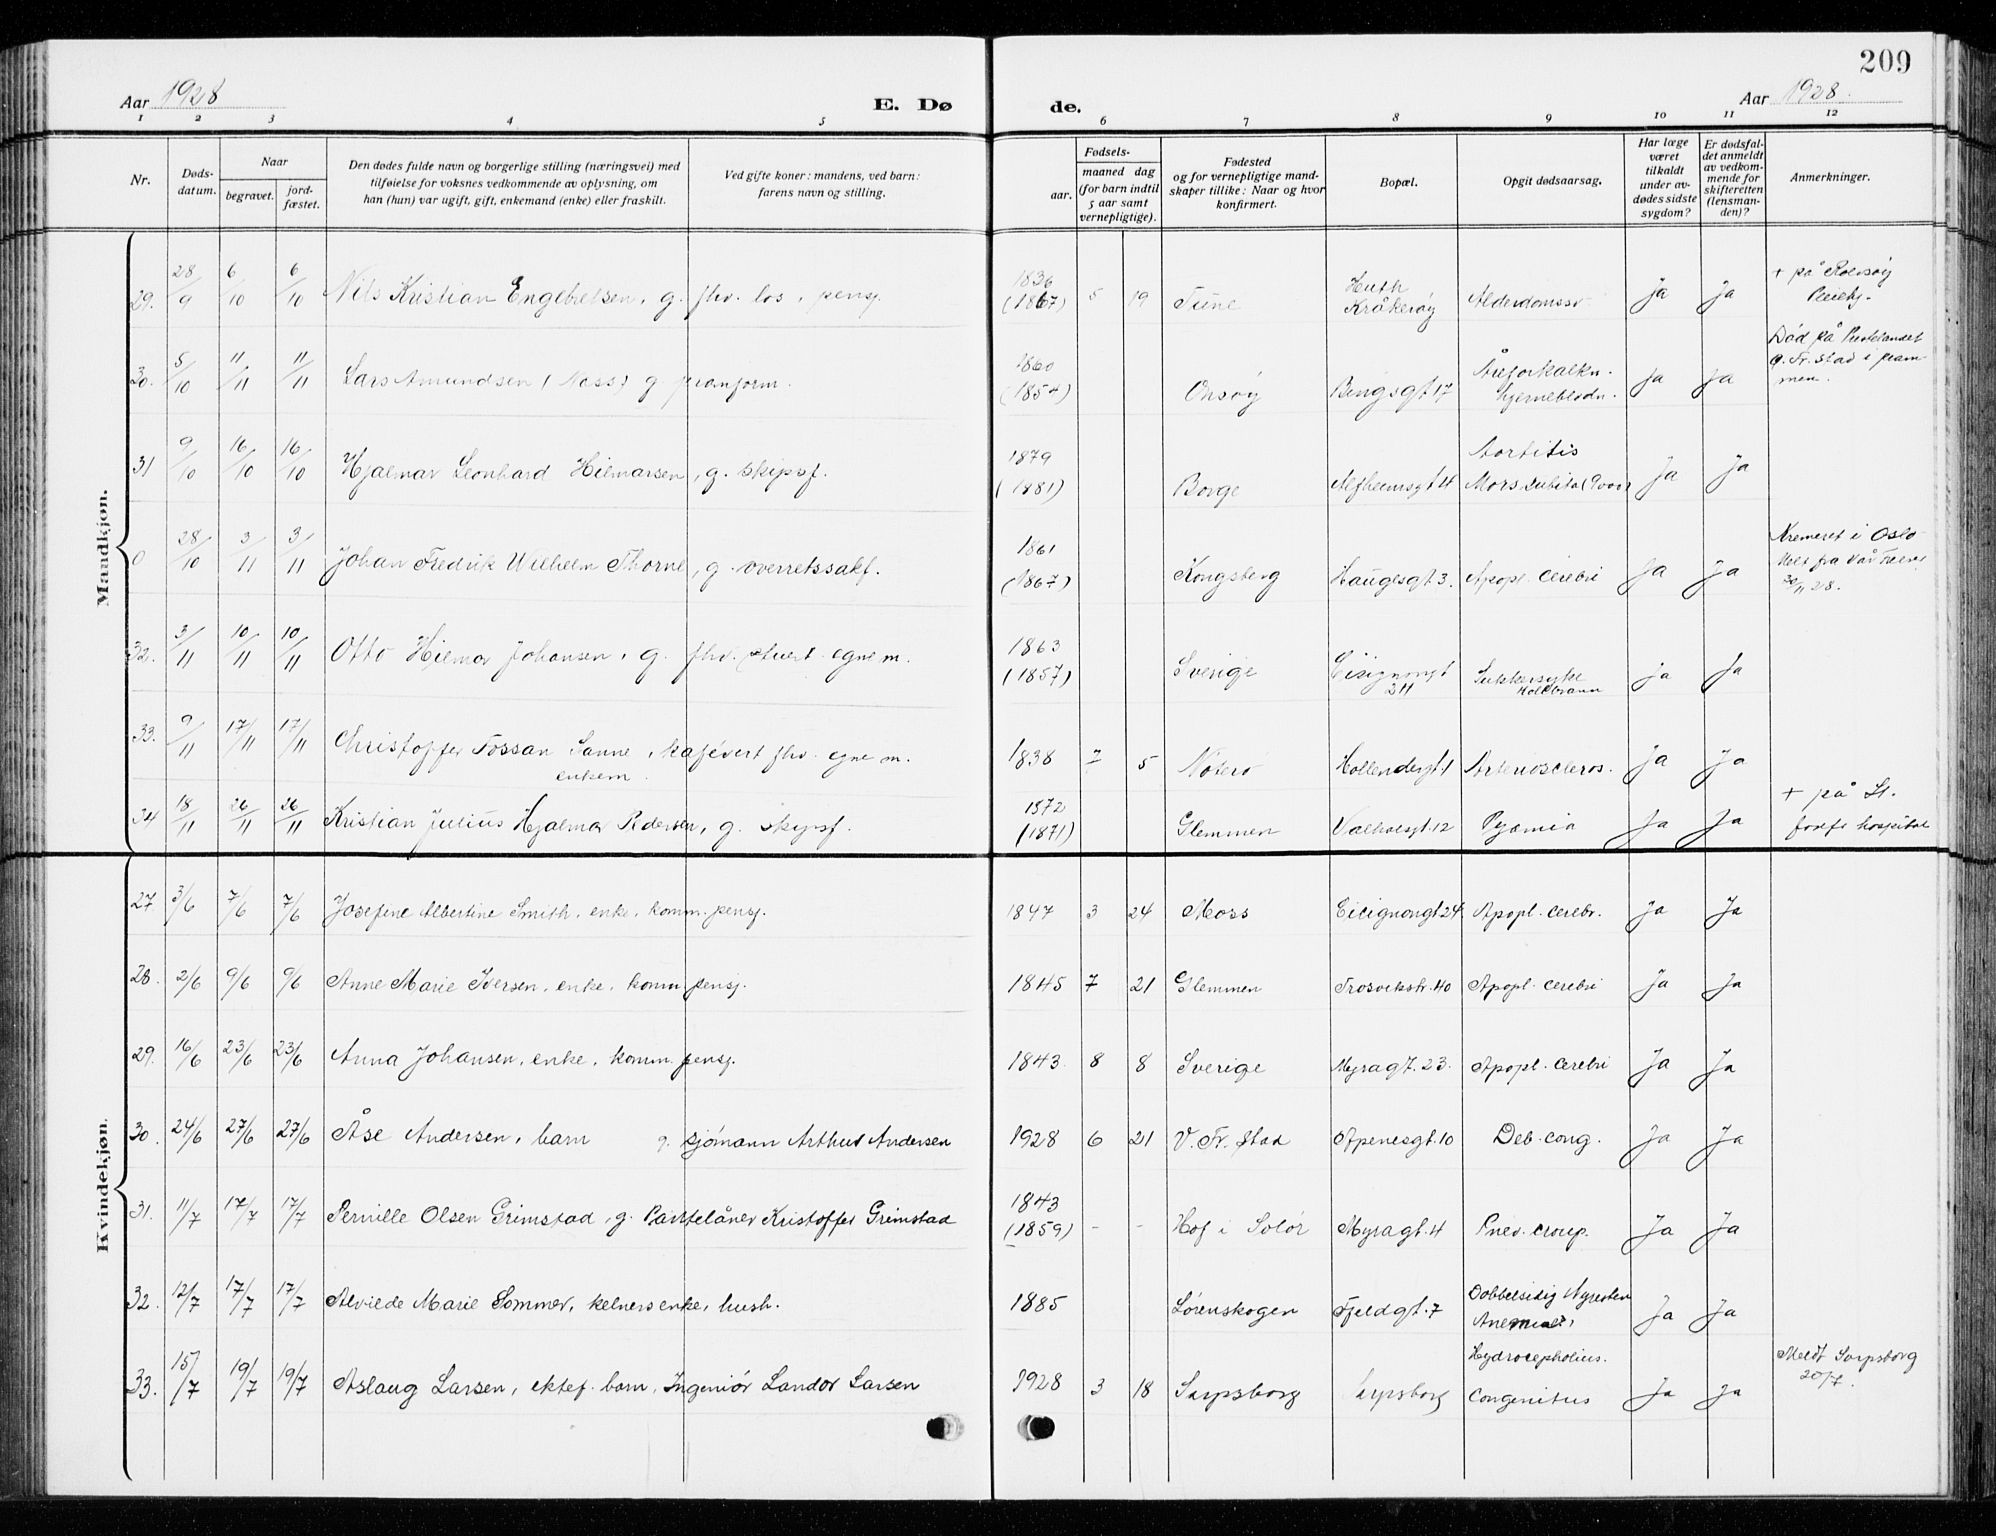 209
Aar 1928
E. Dø
de.
Aar 1928.
1 2 3 4 5 6 7 8 9 10 11 12
Nr.
Døds-
datum.
Naar
begravet.
jord-
fæstet.
Den dødes fulde navn og borgerlige stilling (næringsvei) med
tilføielse for voksnes vedkommende av oplysning, om
han (hun) var ugift, gift, enkemand (enke) eller fraskilt.
Ved gifte koner: mandens, ved barn:
farens navn og stilling.
Fødsels-
aar.
maaned dag
(for barn indtil
5 aar samt
vernepligtige).
Fødested
og for vernepligtige mand-
skaper tillike: Naar og hvor
konfirmert.
Bopæl.
Opgit dødsaarsag.
Har læge
været
tilkaldt
under av-
dødes sidste
sygdom?
Er dødsfal-
det anmeldt
av vedkom-
mende for
skifteretten
(lensman-
den)?
Anmerkninger.
Mandkjøn.
29. 28/9 6/10 6/10 Nils Kristian Engebretsen, g. fhv. los, pensj. 1836 (1867) 5 19 Tune Huth Kråkerøy Alderdomssv. Ja Ja + på Rolvsøy Pleiehj.
30. 5/10 11/11 11/11 Lars Amundsen (Nass) g. pramform. 1860 (1854) Onsøy Bingsgt 17 Åreforkalkn. hjerneblødn. Ja Ja Død på
Fr.stad i pram-
men.
31 9/10 16/10 16/10 Hjalmar Leonhard Hilmarsen, g. skipsf. 1879 (1881) Borge Alfheimsgt 4 Aortitis Mors subita Ja Ja
0 28/10 3/11 3/11 Johan Fredrik Wilhelm Thorne, g. overretssakf. 1861 (1867) Kongsberg Haugesgt 3. Apopl. cerebri Ja Ja Kremeret i Oslo
fra Vår
/11 28.
32. 3/11 10/11 10/11 Otto Hjemar Johansen, g. fhv. stuert egne m. 1863 (1857) Sverige Cicignongt 24 Sukkersyke Koldbrann Ja Ja
33. 9/11 17/11 17/11 Christoffer Fossan Sanne, kafévert fhv. egne m.
enkem. 1838 7 5 Nøterø Hollendergt 1 Arterioscleros. Ja Ja
34 18/11 26/11 26/11 Kristian Julius Hjalmar Pedersen, g. skipsf. 1872 (1871) Glemmen Valhalsgt. 12 Pyæmia Ja Ja + på St.
Josefs hospital
Kvindekjøn.
27 3/6 7/6 7/6 Josefine Albertine Smith, enke, komm. pensj. 1847 3 24 Moss Cicignongt 24 Apopl. cerebr. Ja Ja
28. 2/6 9/6 9/6 Anne Marie Iversen, enke, komm. pensj. 1845 7 21 Glemmen Trosvikstr. 40 Apopl. cerebri Ja Ja
29. 16/6 23/6 23/6 Anna Johansen, enke, komm. pensj. 1843. 8 8 Sverige Myragt. 23. Apopl. cerebri Ja Ja
30. 24/6 27/6 27/6 Åse Andersen, barn g. sjømann Arthur Andersen 1928 6 21 V. Fr.stad Apenesgt. 10 Deb. cong. Ja Ja
31. 11/7 17/7 17/7 Pernille Olsen Grimstad, g. Pantelåner Kristoffer Grimstad 1843 (1859) - - Hof i Solør Myragt. 4 Pnev. croup. Ja Ja
32. 12/7 17/7 17/7 Alvilde Marie Sommer, kelners enke, hush. 1885 Lørenskogen Fjeldgt. 7 Dobbelsidig Nyresten Anemia Ja Ja
33. 15/7 19/7 19/7 Aslaug Larsen, ektef. barn, Ingeniør Landor Larsen 1928 3 18 Sarpsborg Sarpsborg Hydrocepholius. Congenitus Ja Ja Meldt Sarpsborg
20/7.